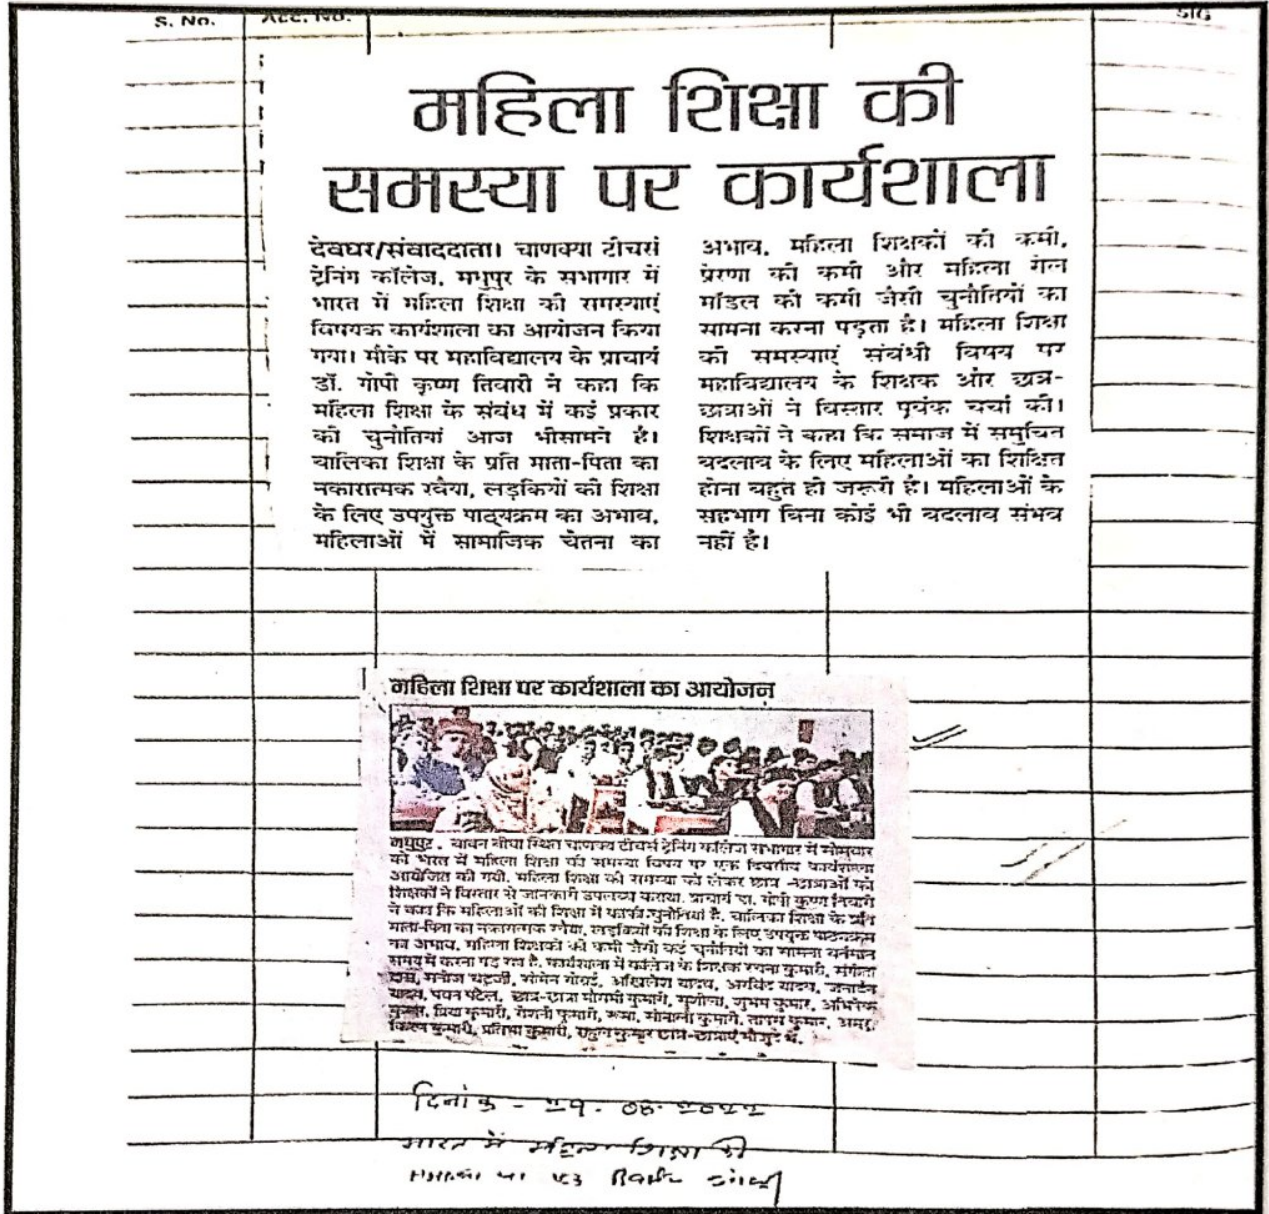 S. No.
Acc. No.
SIG
महिला शिक्षा की
समस्या पर कार्यशाला
देवघर/संवाददाता। चाणक्या टीचर्स
ट्रेनिंग कॉलेज, मधुपुर के सभागार में
भारत में महिला शिक्षा की समस्याएं
विषयक कार्यशाला का आयोजन किया
गया। मौके पर महाविद्यालय के प्राचार्य
डॉ. गोपी कृष्ण तिवारी ने कहा कि
महिला शिक्षा के संबंध में कई प्रकार
की चुनौतियां आज भीसामने है।
बालिका शिक्षा के प्रति माता-पिता का
नकारात्मक रवैया, लड़कियों की शिक्षा
के लिए उपयुक्त पाठ्यक्रम का अभाव,
महिलाओं में सामाजिक चेतना का
अभाव, महिला शिक्षकों की कमी,
प्रेरणा की कमी और महिला रोल
मॉडल की कमी जैसी चुनौतियों का
सामना करना पड़ता है। महिला शिक्षा
की समस्याएं संबंधी विषय पर
महाविद्यालय के शिक्षक और छात्र-
छात्राओं ने विस्तार पूर्वक चर्चा की।
शिक्षकों ने कहा कि समाज में समुचित
बदलाव के लिए महिलाओं का शिक्षित
होना बहुत ही जरूरी है। महिलाओं के
सहभाग बिना कोई भी बदलाव संभव
नहीं है।
महिला शिक्षा पर कार्यशाला का आयोजन
मधुपुर . बावन बीघा स्थित चाणक्य टीचर्स ट्रेनिंग कॉलेज सभागार में सोमवार
को भारत में महिला शिक्षा की समस्या विषय पर एक दिवसीय कार्यशाला
आयोजित की गयी. महिला शिक्षा की समस्या को लेकर छात्र -छात्राओं को
शिक्षकों ने विस्तार से जानकारी उपलब्ध कराया. प्राचार्य डा. गोपी कृष्ण तिवारी
ने कहा कि महिलाओं की शिक्षा में काफी चुनौतियां है. बालिका शिक्षा के प्रति
माता-पिता का नकारात्मक रवैया, लड़कियों की शिक्षा के लिए उपयुक्त पाठ्यक्रम
का अभाव, महिला शिक्षकों की कमी जैसी कई चुनौतियों का सामना वर्तमान
समय में करना पड़ रहा है. कार्यशाला में कॉलेज के शिक्षक रचना कुमारी, संगीता
दास, मनोज चटर्जी, अखिलेश यादव, अरविंद यादव, जनार्दन
यादव, पवन पटेल, छात्र-छात्रा मौसमी कुमारी, सुशीला, शुभम कुमार, अभिषेक
प्रिया कुमारी, रोशनी कुमारी, रूमा, सोनाली कुमारी, तापस कुमार, अमर,
किरण कुमारी, प्रतिभा कुमारी, राहुल कुमार छात्र-छात्राएं मौजूद थे.
दिनांक - 29. 08. 2022
भारत में महिला शिक्षा की